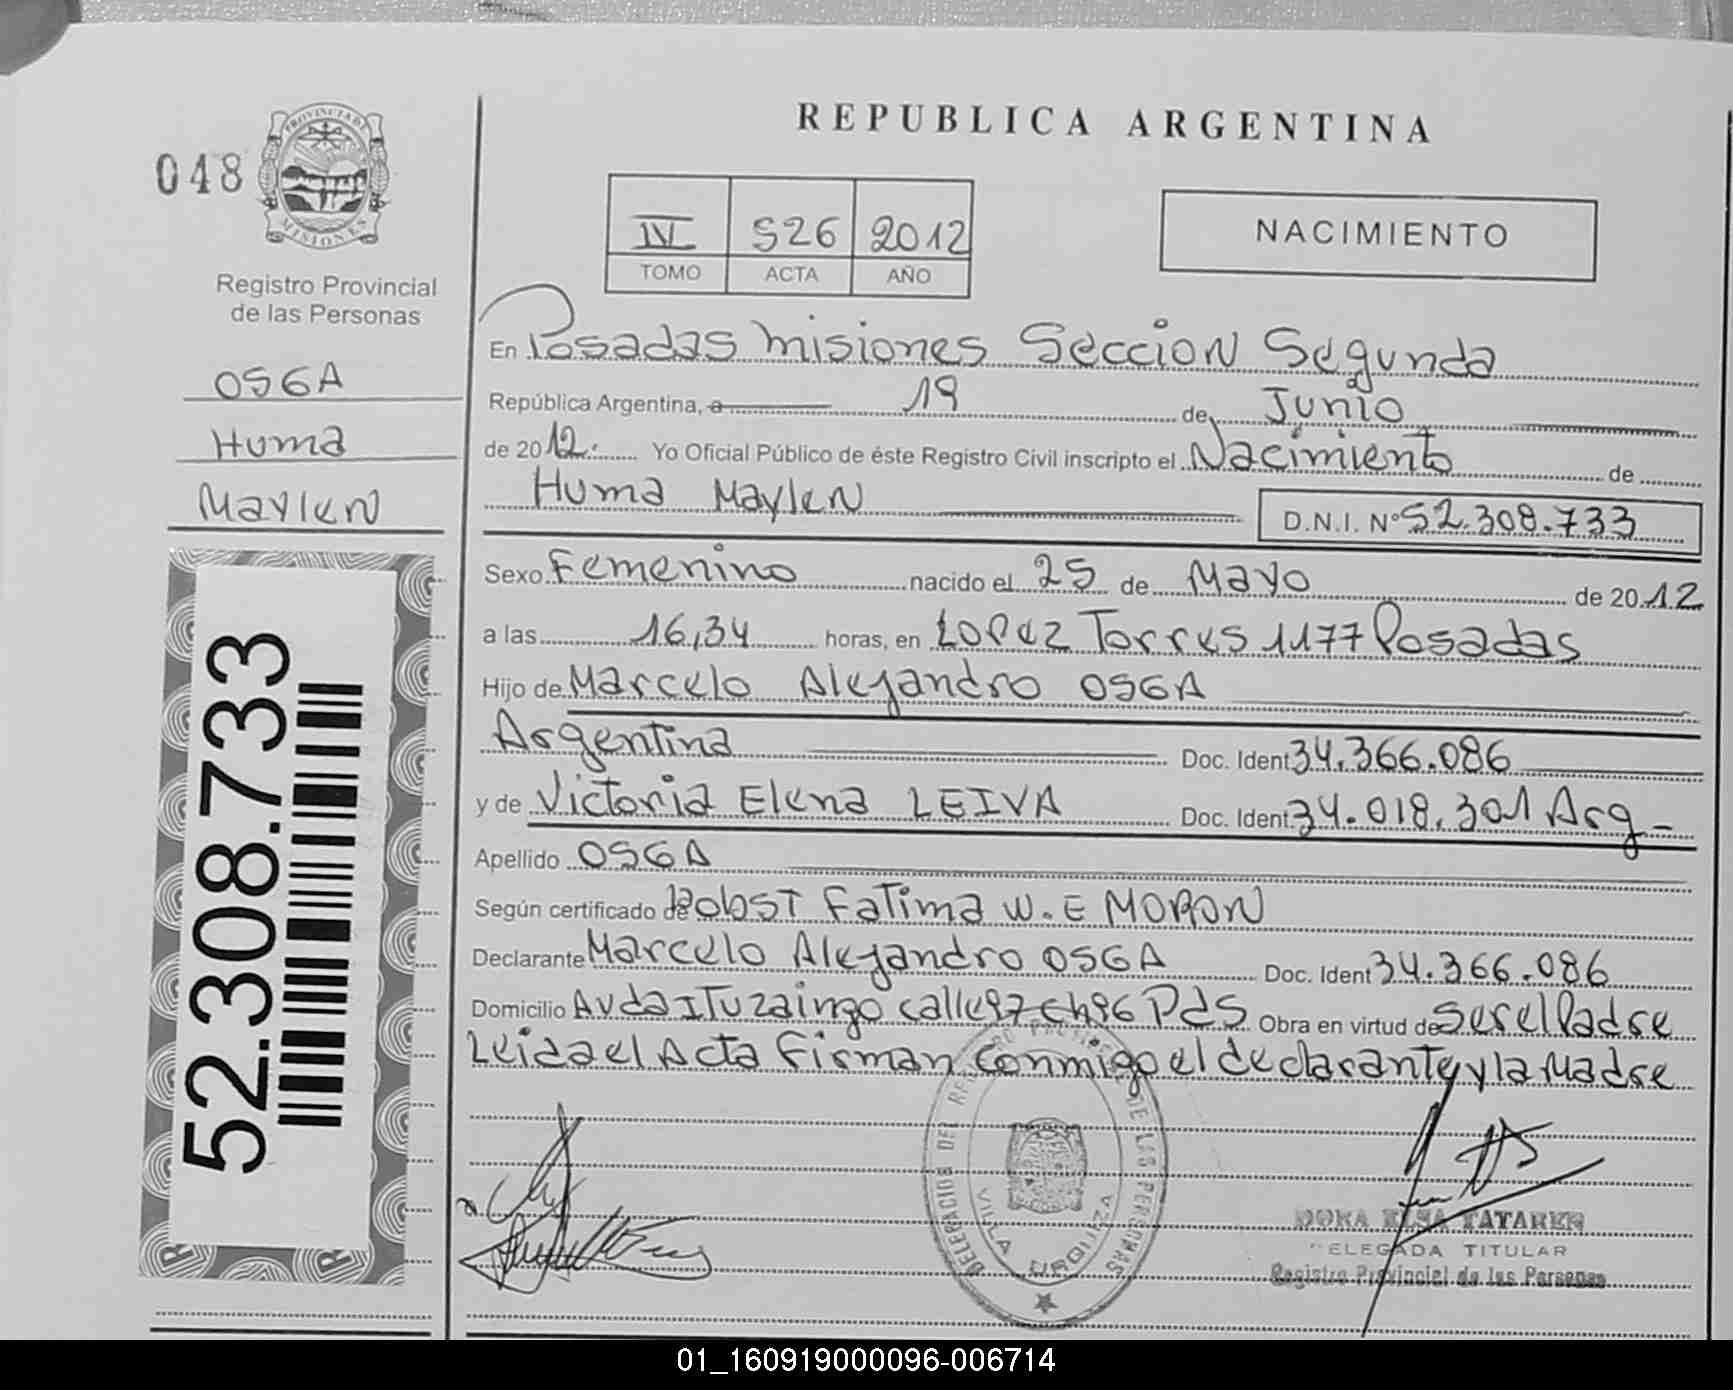 REPUBLICA ARGENTINA
048
PROVINCIA DE
MISIONES
Registro Provincial
de las Personas
OSGA
Huma
Maylen
52.308.733
IV 526 2012
TOMO ACTA AÑO
NACIMIENTO
En Posadas Misiones Seccion Segunda
República Argentina, a 19 de Junio
de 2012. Yo Oficial Público de éste Registro Civil inscripto el Nacimiento de
Huma Maylen D.N.I. Nº 52.308.733
Sexo Femenino nacido el 25 de Mayo de 2012
a las 16,34 horas, en Lopez Torres 1177 Posadas
Hijo de Marcelo Alejandro OSGA
Argentina Doc. Ident 34.366.086
y de Victoria Elena LEIVA Doc. Ident 34.018.301 Arg-
Apellido OSGA
Según certificado de Obst Fatima W. E MORON
Declarante Marcelo Alejandro OSGA Doc. Ident 34.366.086
Domicilio Avda Ituzaingo calle 97 Ch 96 Pds Obra en virtud de Ser el Padre
Leida el Acta Firman Conmigo el declarante y la Madre
DELEGACION DEL REGISTRO PROVINCIAL DE LAS PERSONAS
VILLA URQUIZA
DORA ELSA TATAREN
DELEGADA TITULAR
Registro Provincial de las Personas
01_160919000096-006714